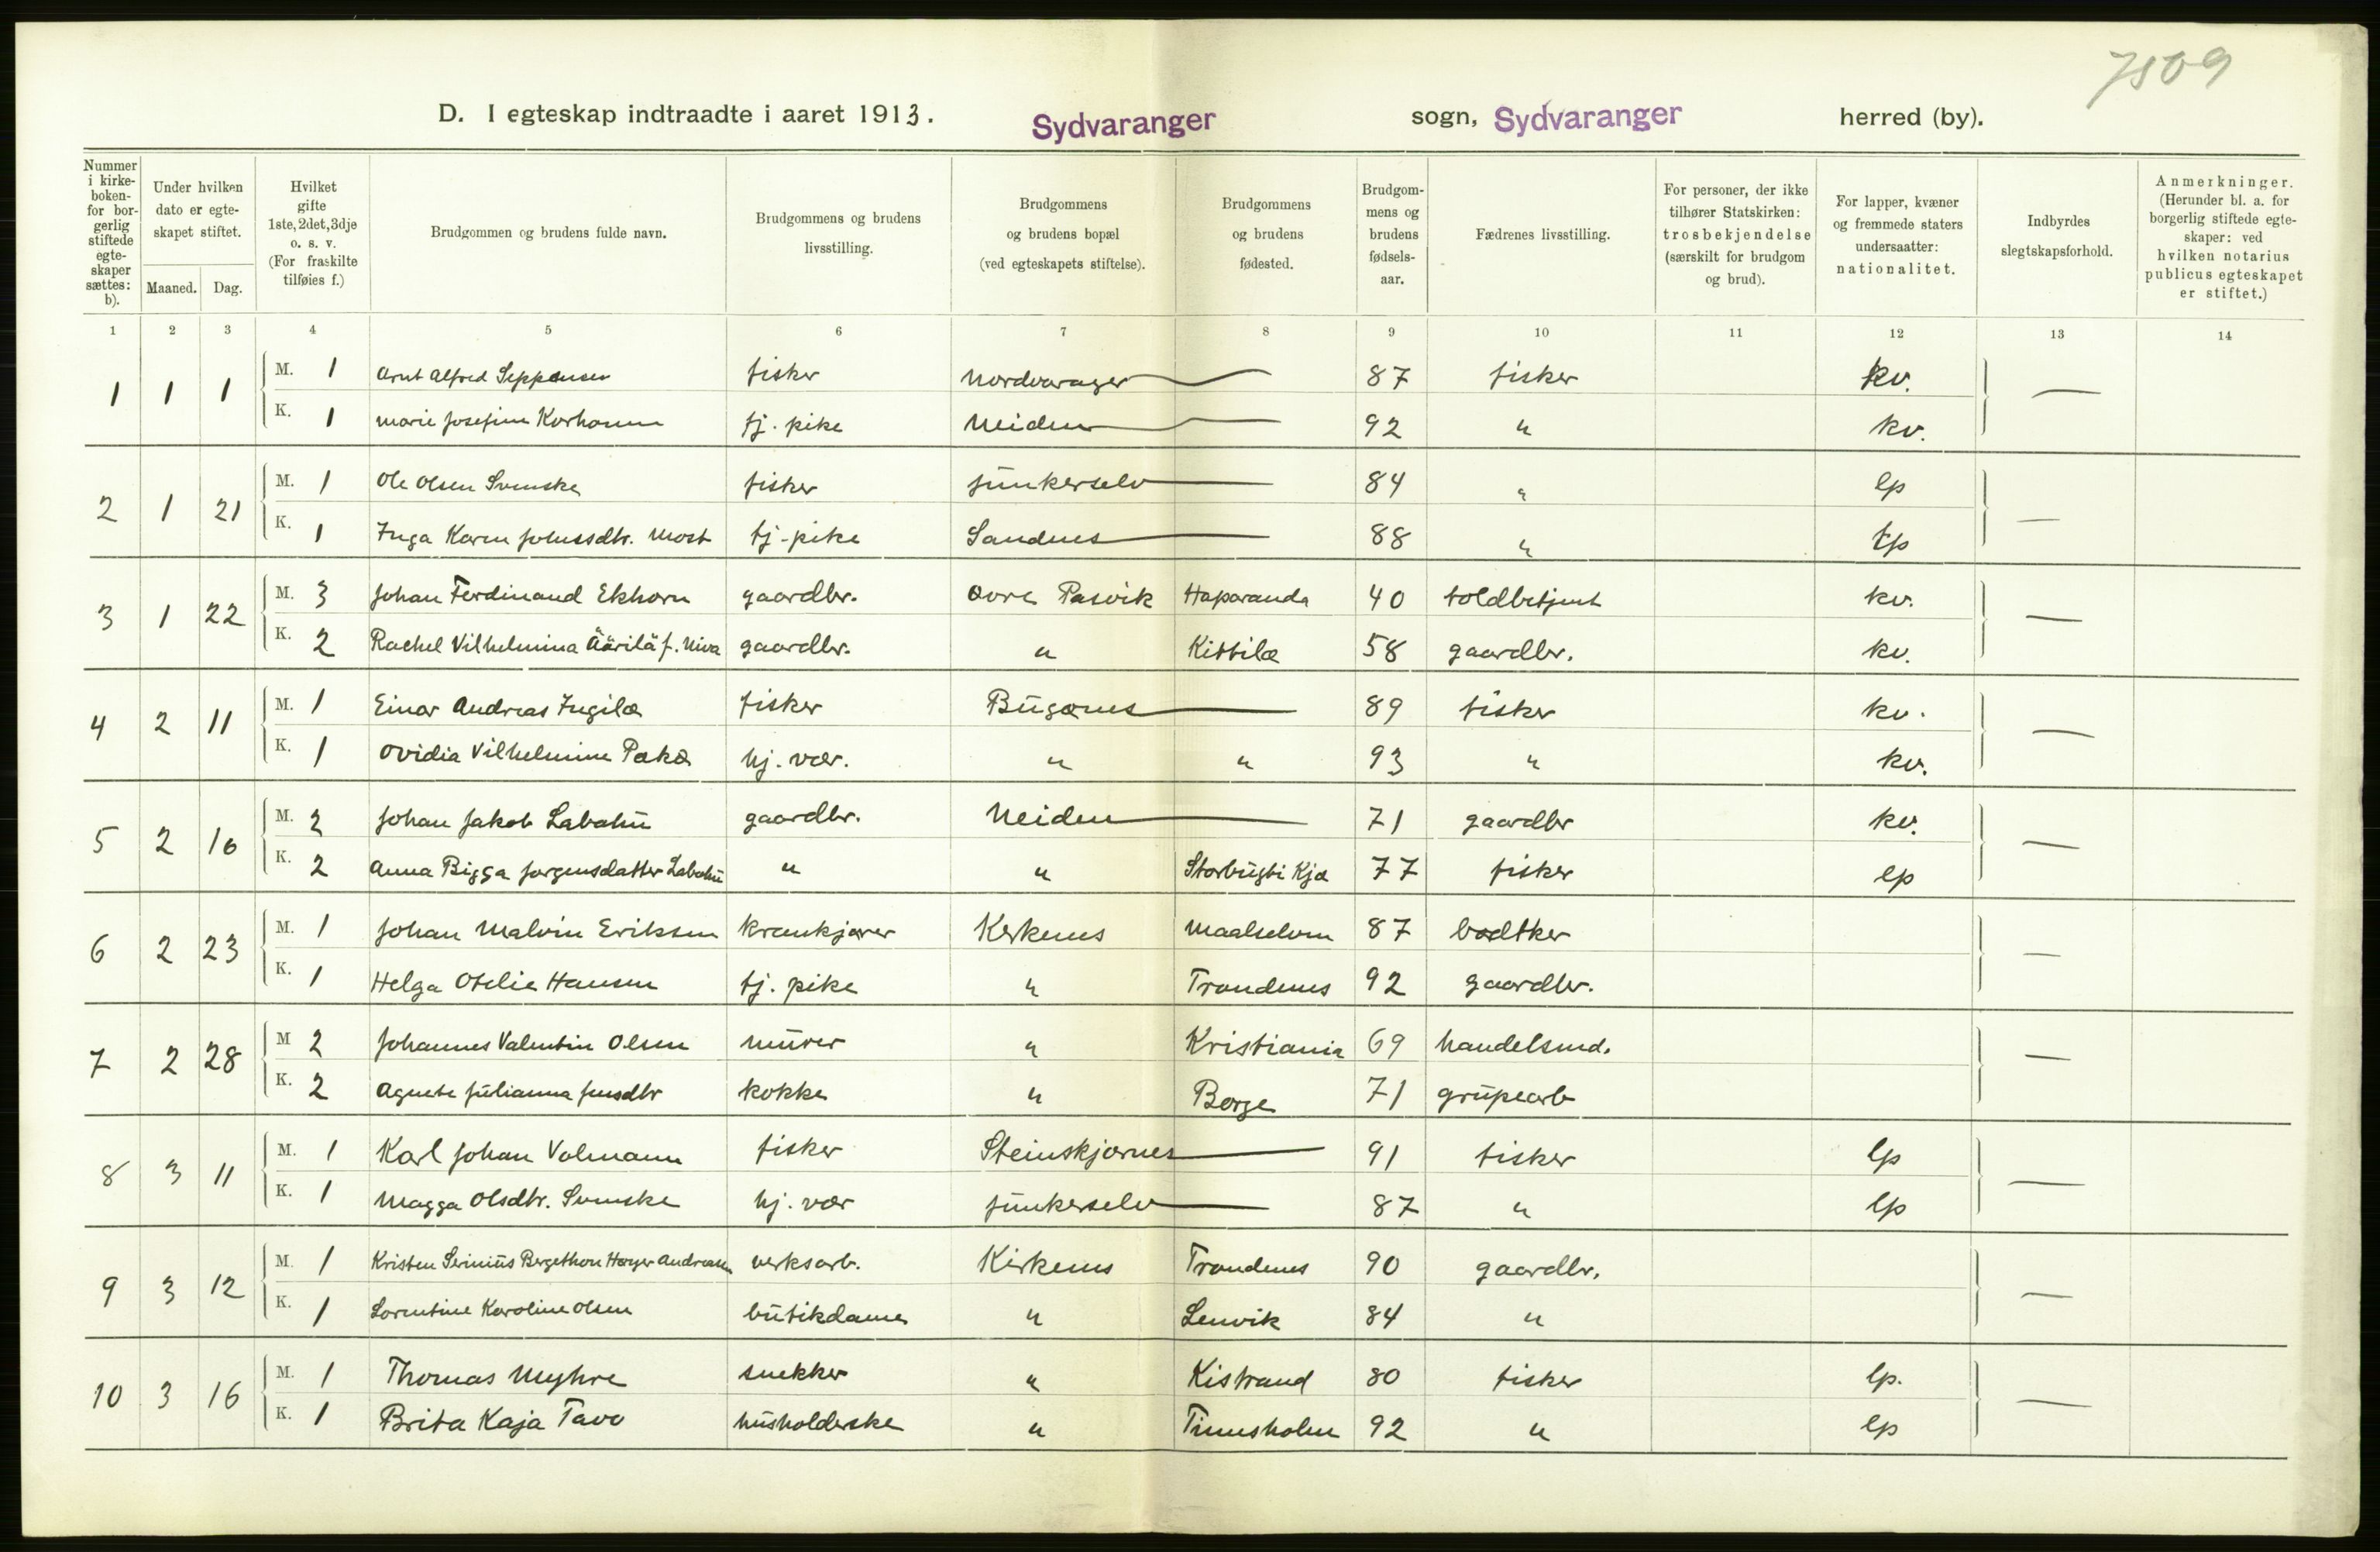 7509
D. I egteskap indtraadte i aaret 1913. Sydvaranger sogn, Sydvaranger herred (by).
Nummer i kirke-boken- for bor-gerlig stiftede egte-skaper sættes: b).
Under hvilken dato er egte-skapet stiftet.
Maaned. Dag.
Hvilket gifte 1ste, 2det, 3dje o. s. v. (For fraskilte tilføies f.)
Brudgommen og brudens fulde navn.
Brudgommens og brudens livsstilling.
Brudgommens og brudens bopæl (ved egteskapets stiftelse).
Brudgommens og brudens fødested.
Brudgom-mens og brudens fødsels-aar.
Fædrenes livsstilling.
For personer, der ikke tilhører Statskirken: trosbekjendelse (særskilt for brudgom og brud).
For lapper, kvæner og fremmede staters undersaatter: nationalitet.
Indbyrdes slegtskapsforhold.
Anmerkninger. (Herunder bl. a. for borgerlig stiftede egte-skaper: ved hvilken notarius publicus egteskapet er stiftet.)
1 2 3 4 5 6 7 8 9 10 11 12 13 14
1 1 1 M. 1 Arnt Alfred Seppensen fisker Nordvaranger — 87 fisker kv. —
K. 1 Marie Josefine Korhonen tj. pike Neiden — 92 " kv.
2 1 21 M. 1 Ole Olsen Svenske fisker Junkerselv — 84 " lp —
K. 1 Inga Karen Johnsdtr. Most tj-pike Sandnes — 88 " lp
3 1 22 M. 3 Johan Ferdinand Ekhorn gaardbr. Øvre Pasvik Haparanda 40 toldbetjent kv. —
K. 2 Rachel Vilhelmina Äärilä f. Niva gaardbr. " Kittilæ 58 gaardbr. kv.
4 2 11 M. 1 Einar Andreas Ingilæ fisker Bugønes — 89 fisker kv. —
K. 1 Ovidia Vilhelmine Pakæ hj. vær. " " 93 " kv.
5 2 16 M. 2 Johan Jakob Labahu gaardbr. Neiden — 71 gaardbr kv. —
K. 2 Anna Bigga Jørgensdatter Labahu " " Storbugti Kjø 77 fisker lp
6 2 23 M. 1 Johan Malvin Eriksen krankjører Kirkenes Maalselven 87 bødtker —
K. 1 Helga Otelie Hansen tj. pike " Trondenes 92 gaardbr.
7 2 28 M 2 Johannes Valentin Olsen murer " Kristiania 69 handelsmd. —
K. 2 Agnete Julianna Jensdtr kokke " Borge 71 grupearb
8 3 11 M. 1 Karl Johan Valmann fisker Steinskjærnes — 91 fisker lp —
K. 1 Magga Olsdtr. Svenske hj. vær Junkerselv — 87 " lp
9 3 12 M. 1 Kristen Serinius Bergethon Høyer Andreasen verksarb. Kirkenes Trondenes 90 gaardbr. —
K. 1 Lorentine Karoline Olsen butikdame " Lenvik 84 "
10 3 16 M. 1 Thomas Myhre snekker " Kistrand 80 fisker lp. —
K. 1 Brita Kaja Tavo husholderske " Timesholm 92 " lp